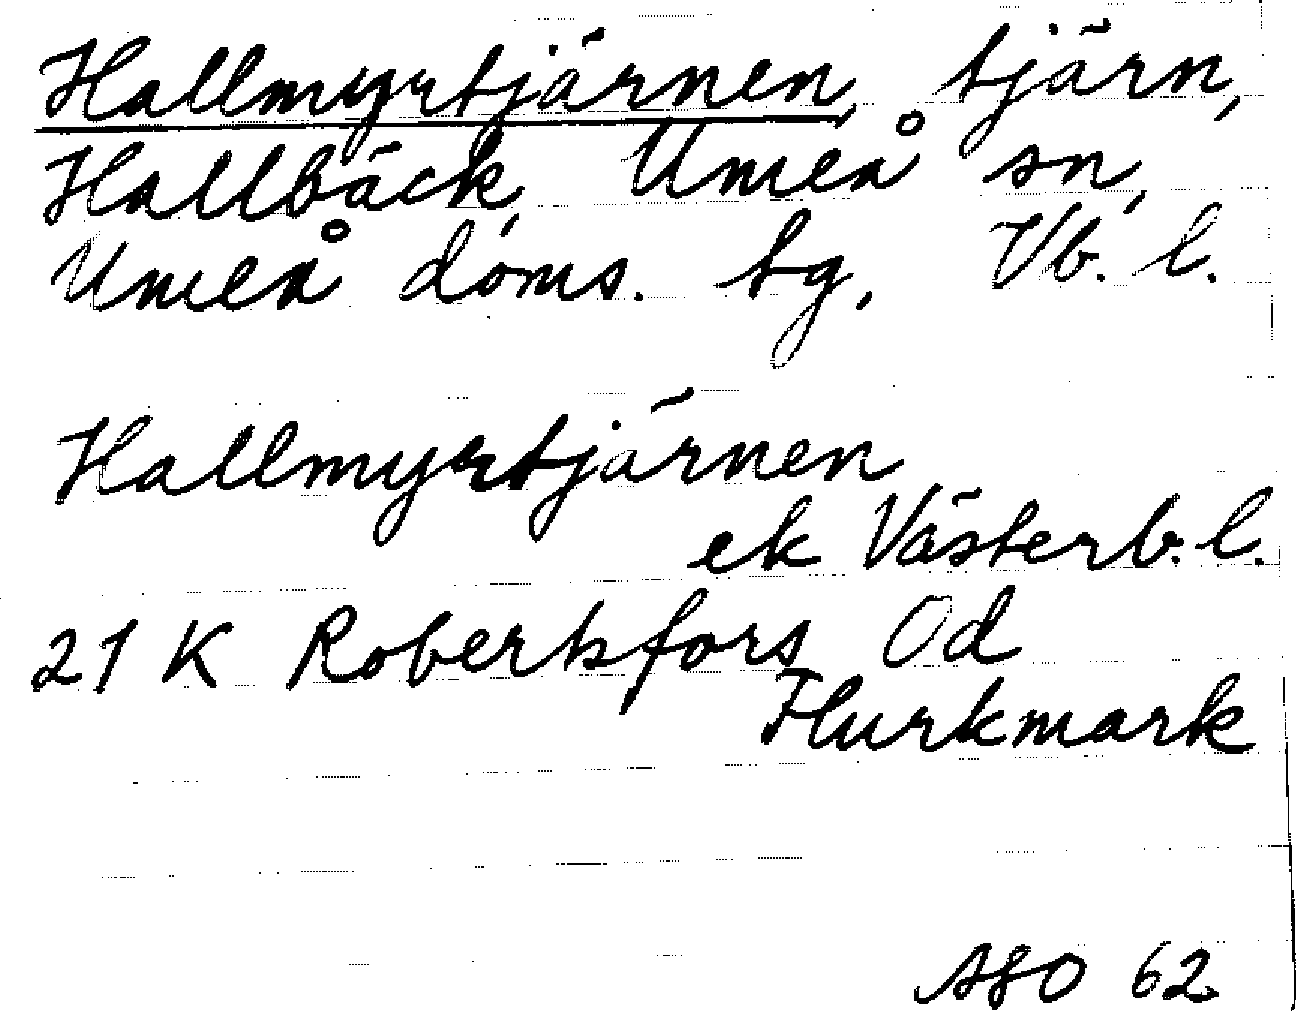 Hallmyrtjärnen, tjärn,
Hallbäck, Umeå sn,
Umeå doms. tg, Vb. l.
Hallmyrtjärnen
ek Västerb. l.
21 K Robertsfors Od
Flurkmark
62